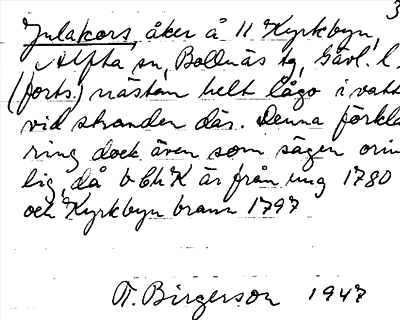 3
Julakors, åker å 11 Kyrkbyn,
Alfta sn, Bollnäs tg, Gävl. l.
(forts.) nästan helt lågo i vatt
vid stranden där. Denna förkla
ring dock även som sägen orim
lig, då bChK är från ung 1780
och Kyrkbyn brann 1797
T. Birgerson 1947